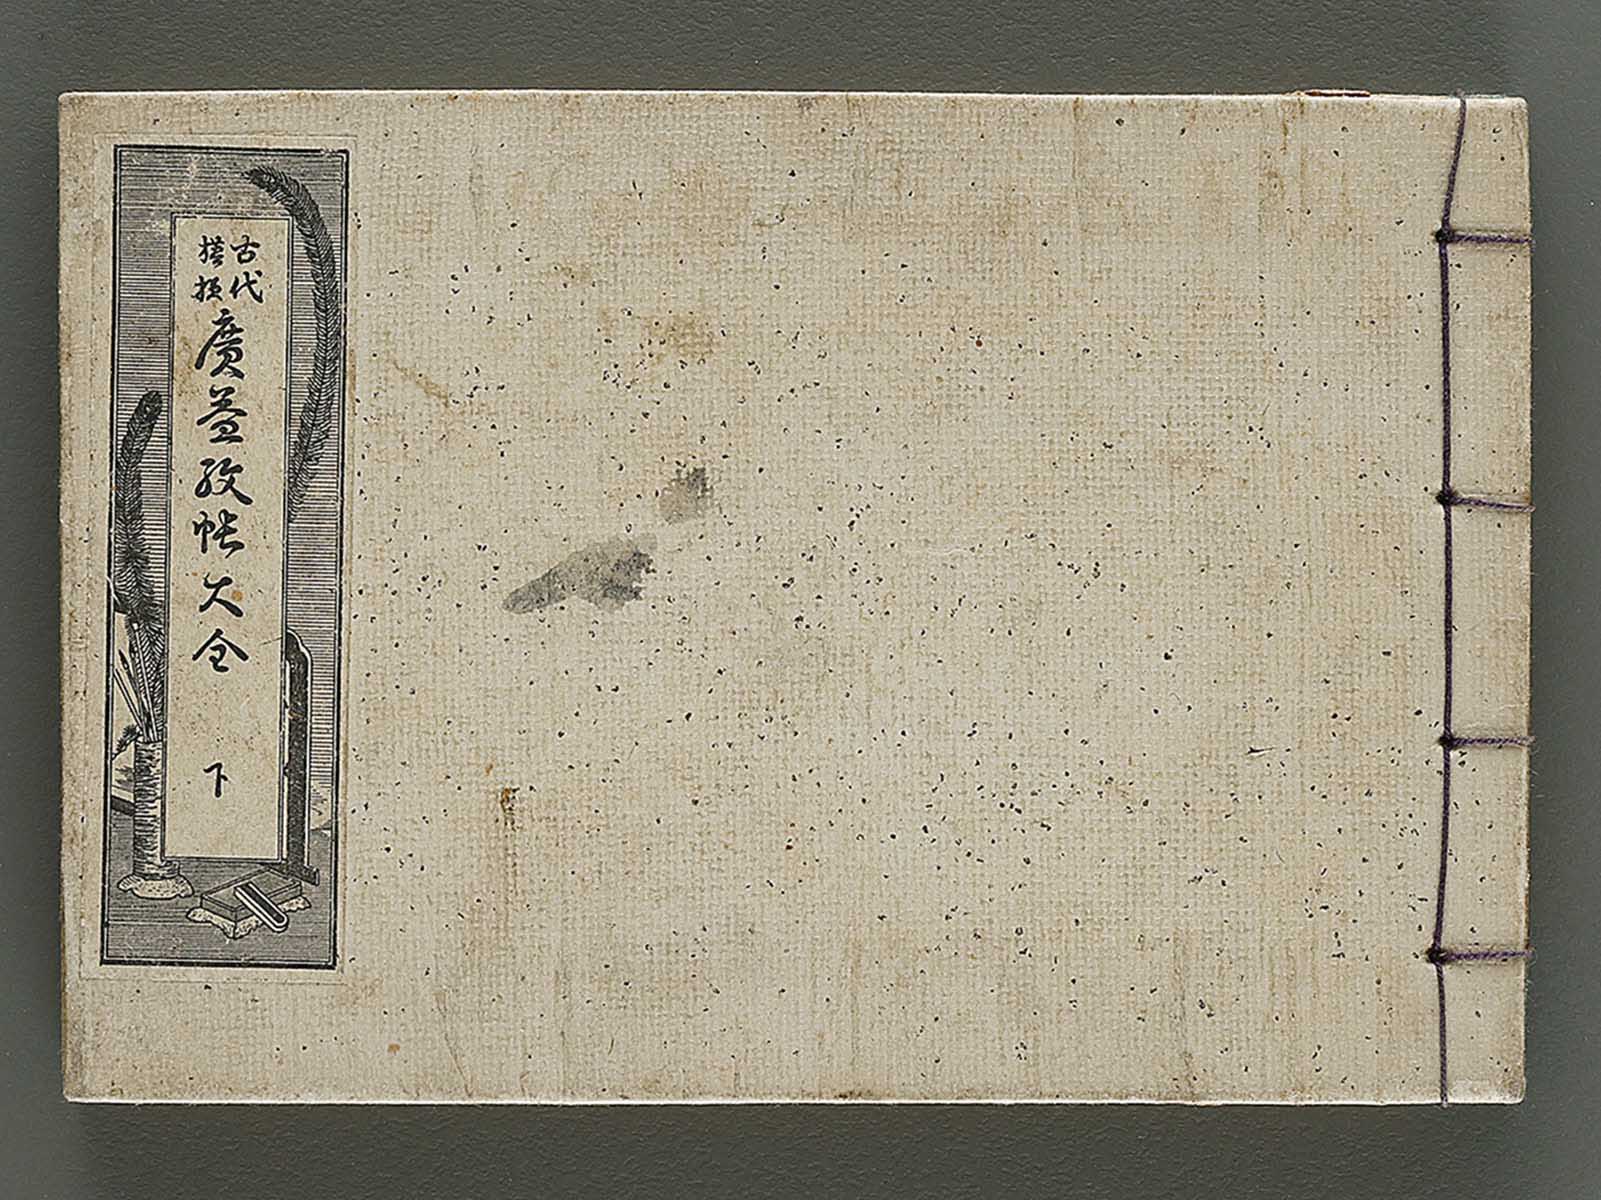 古代
模様
廣益紋帳大全
下